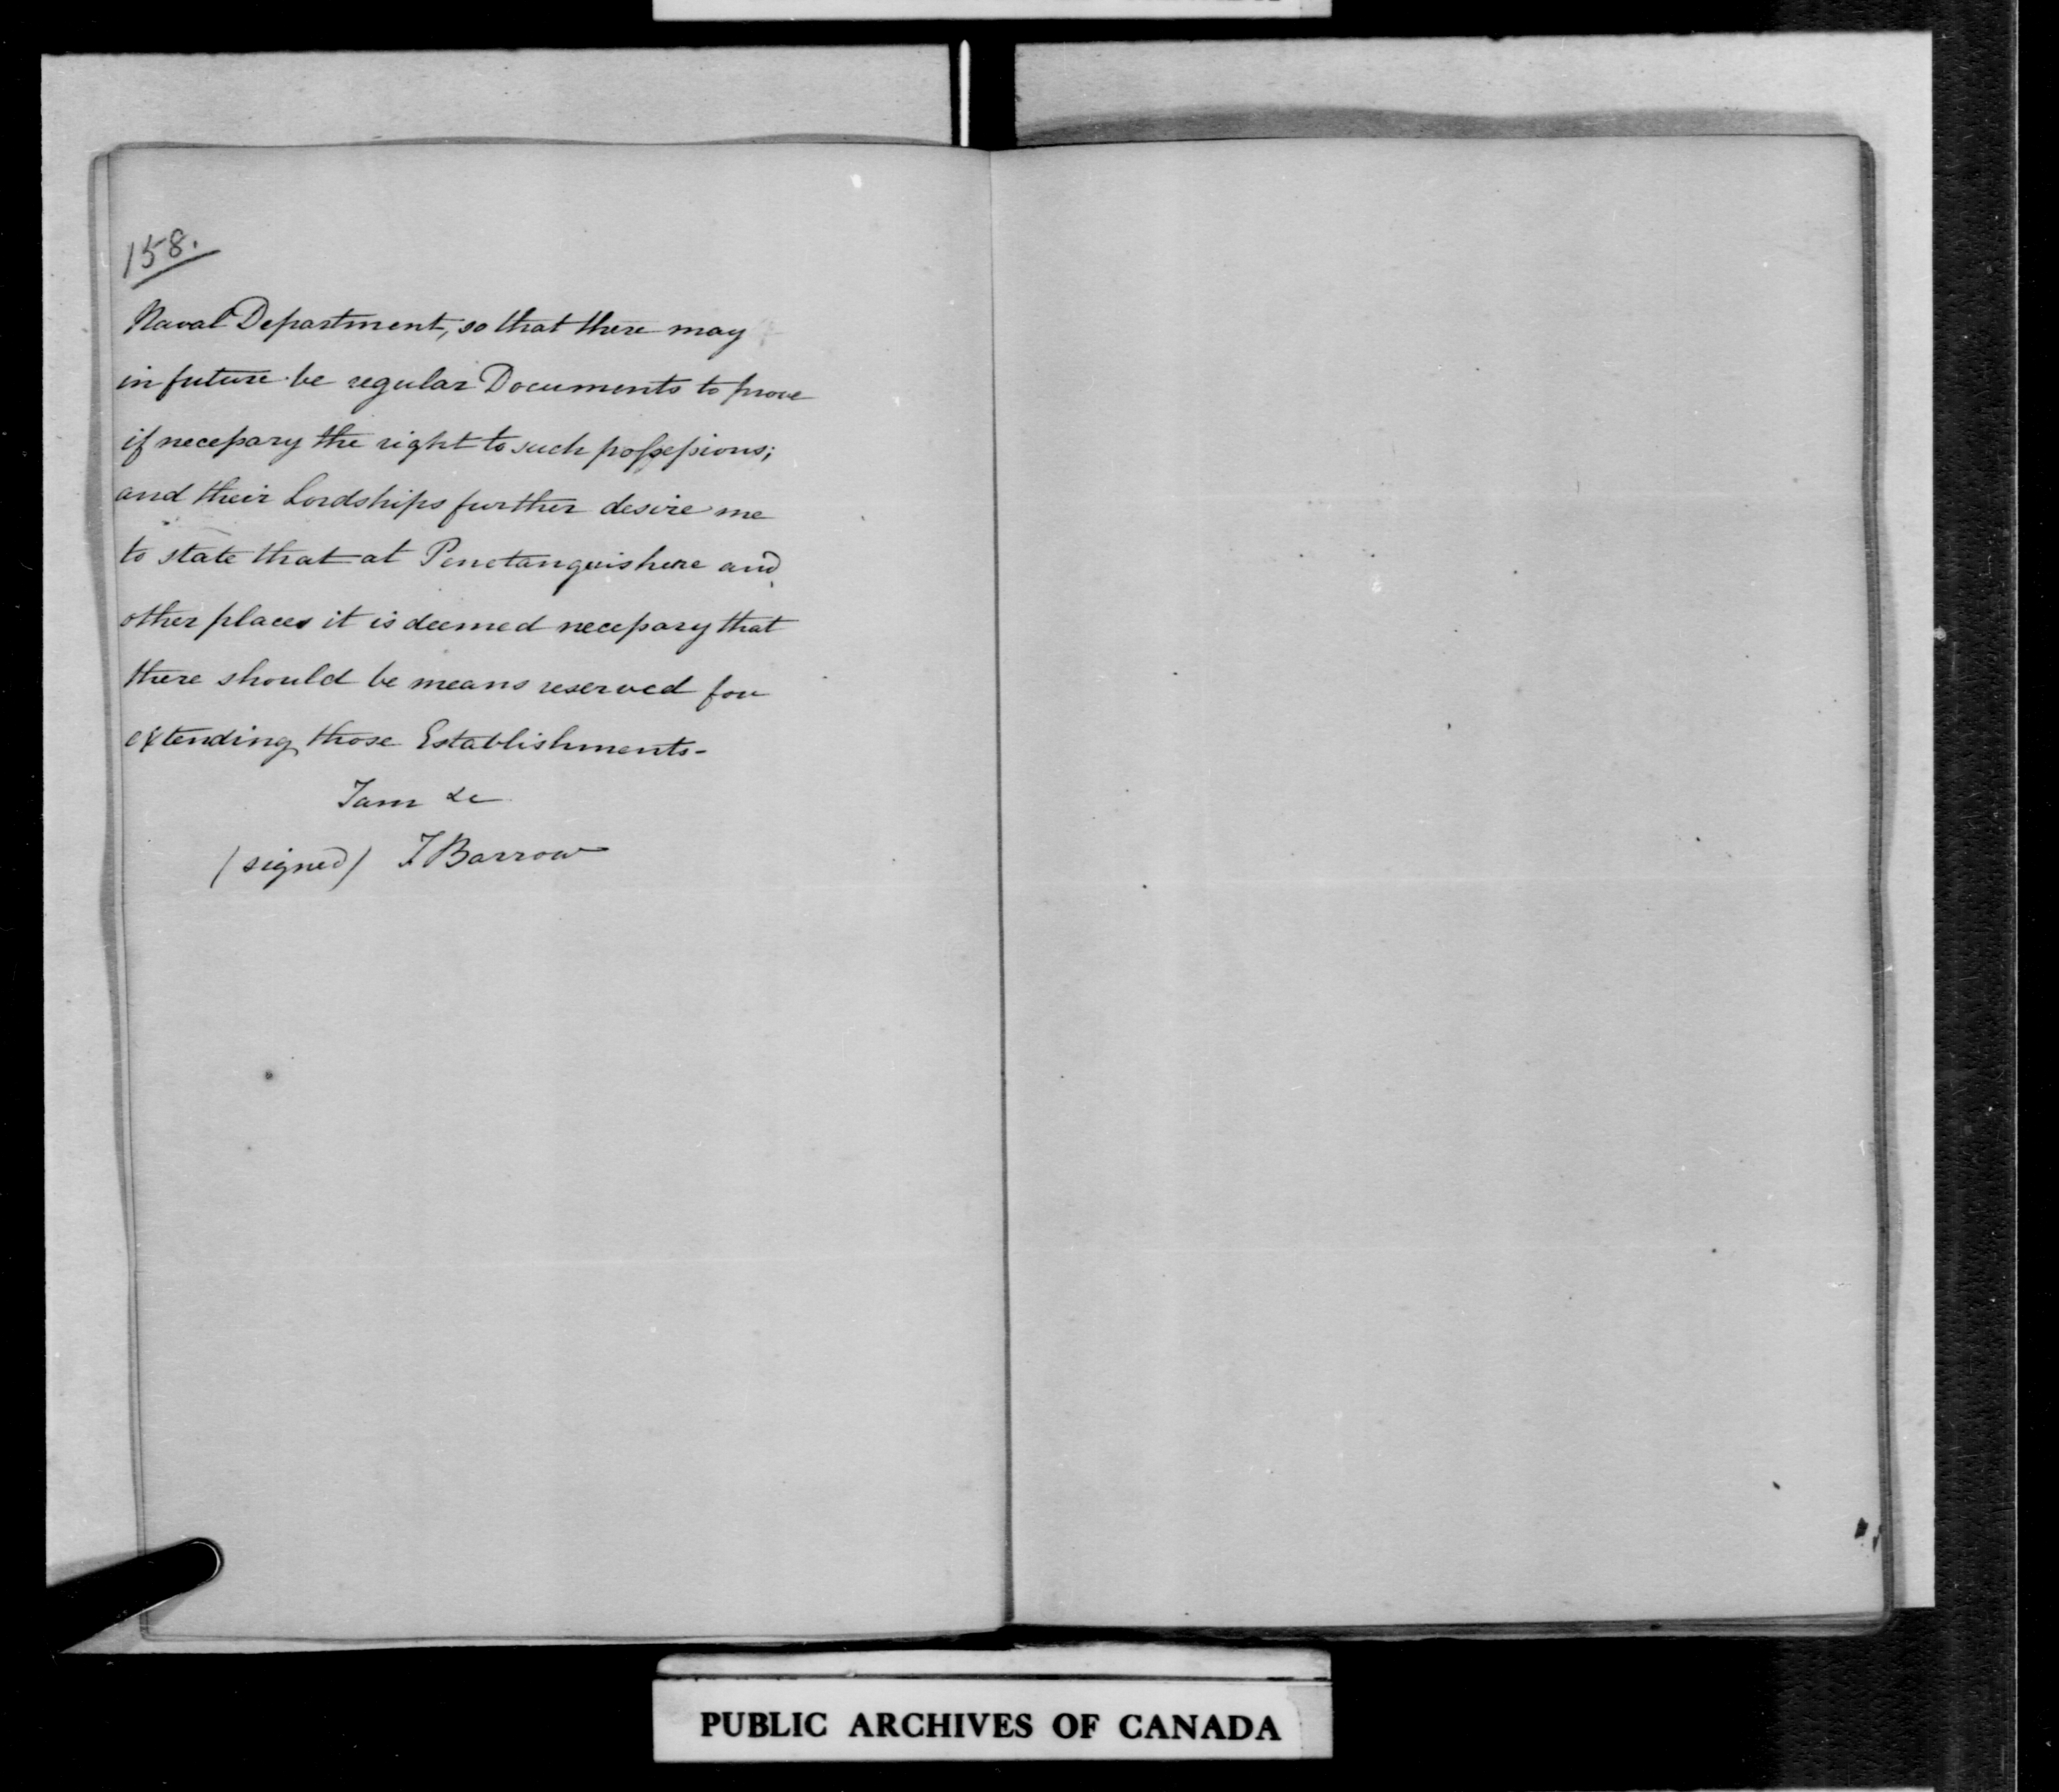 158.
Naval Department, so that there may
in future be regular Documents to prove
if necessary the right to such possessions;
and their Lordships further desire me
to state that at Penetanguishere and
other places it is deemed necessary that
there should be means reserved for
extending those Establishments-
I am &c
(signed) J Barrow
PUBLIC ARCHIVES OF CANADA